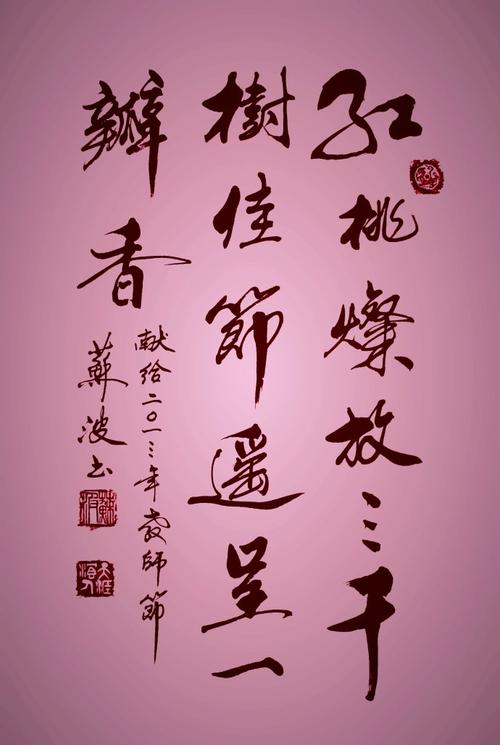 红桃燦放三千
樹佳節遥呈一
瓣香
献给二〇一三年教師節
蘇波书